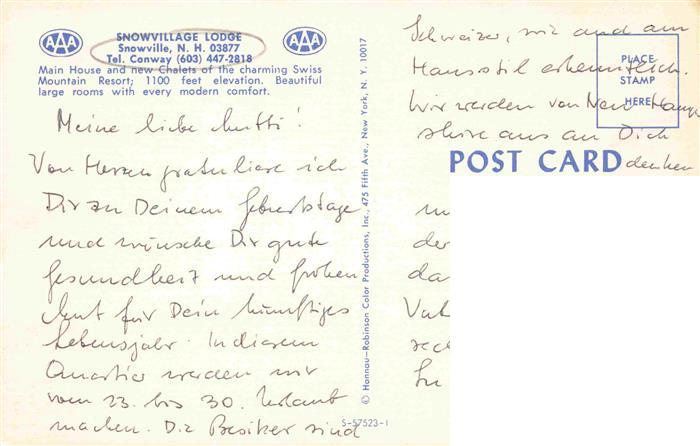 AAA
SNOWVILLAGE LODGE
Snowville, N. H. 03877
Tel. Conway (603) 447-2818
AAA
Main House and new Chalets of the charming Swiss
Mountain Resort; 1100 feet elevation. Beautiful
large rooms with every modern comfort.
Meine liebe Mutti!
Von Herzen gratuliere ich
Dir zu Deinem Geburtstage
und wünsche Dir gute
Gesundheit und frohen
Mut für Dein künftiges
Lebensjahr. In diesem
Quartier werden wir
vom 23. bis 30. Urlaub
machen. Die Besitzer sind
© Hannau-Robinson Color Productions, Inc., 475 Fifth Ave., New York, N. Y. 10017
S-57523-1
Schweizer, wie auch am
Hausstil erkenntlich.
Wir werden von New Hamp
shire aus an Dich
denken
PLACE
STAMP
HERE
POST CARD
der
da